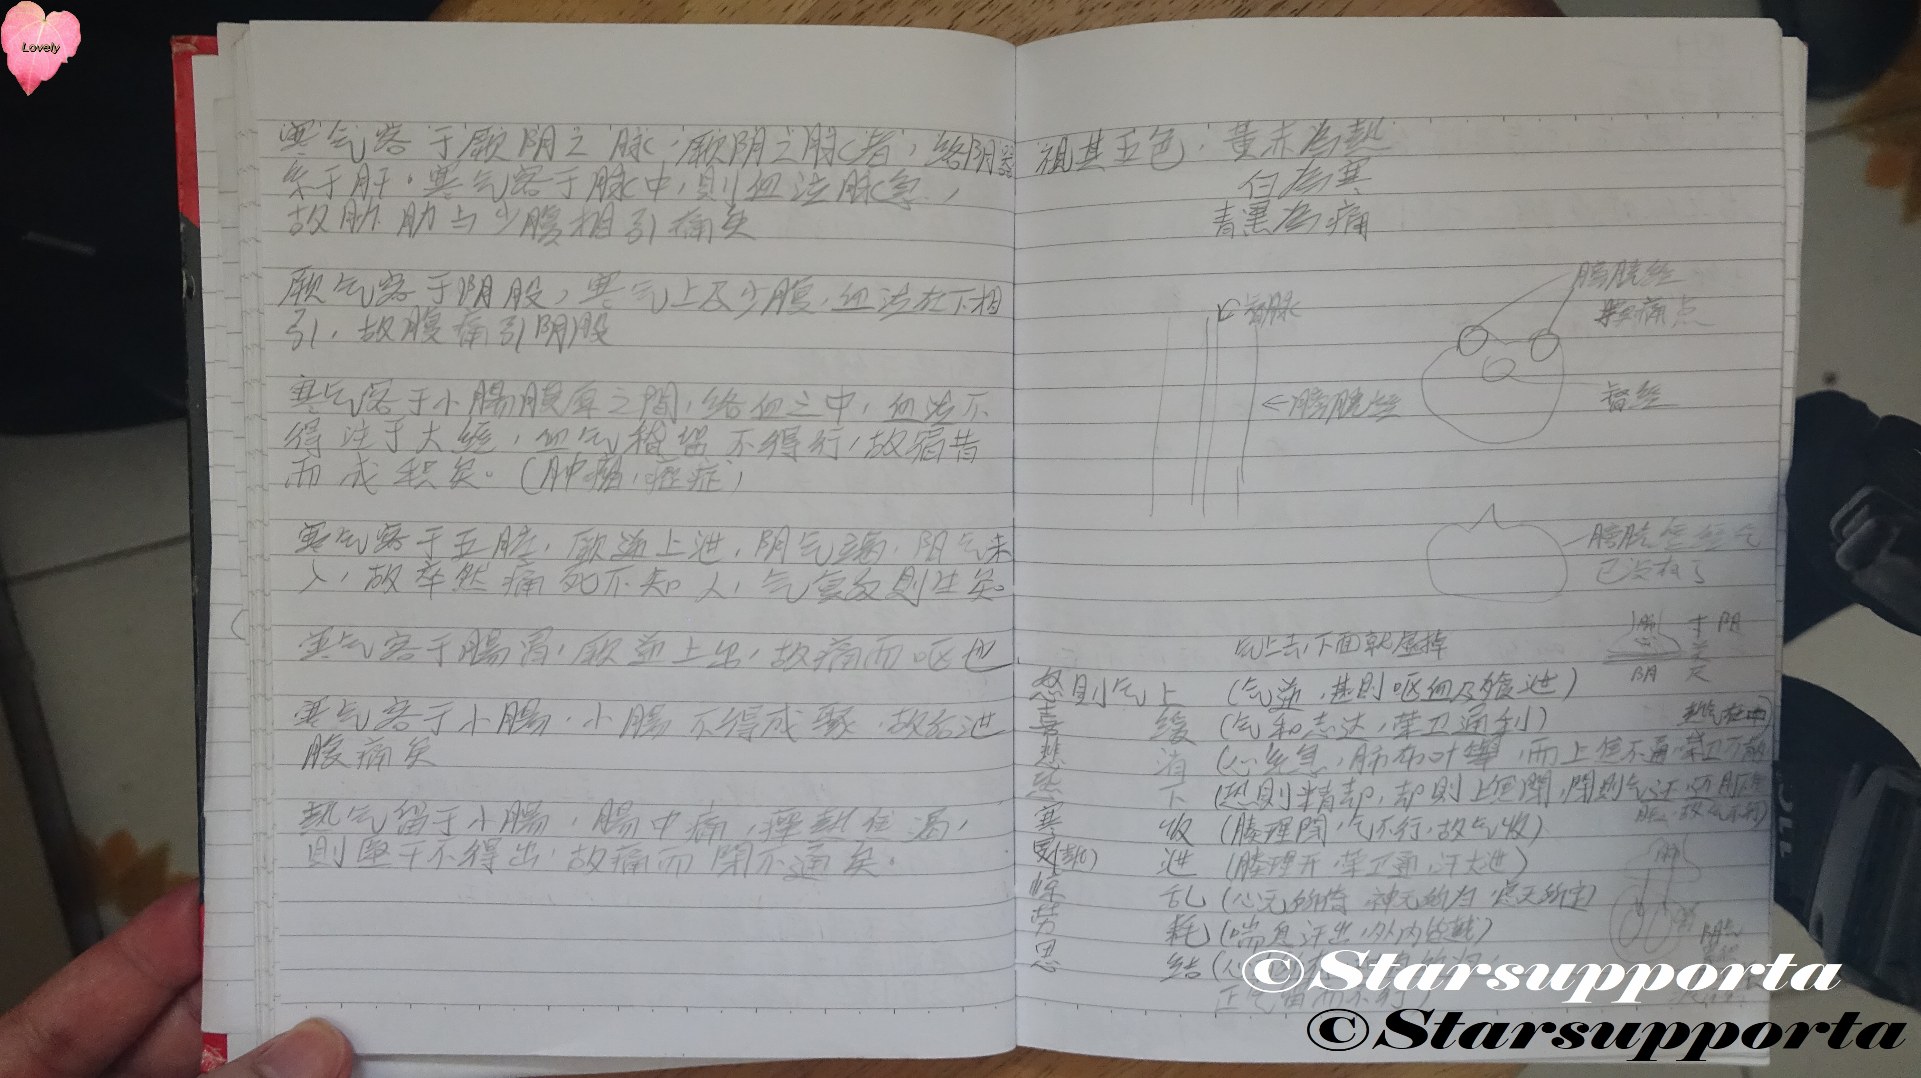 Lovely
寒气客于厥阴之脉,厥阴之脉者,络阴器
系于肝。寒气客于脉中,則血泣脉急,
故肋 肋与少腹相引痛矣
厥气客于阴股,寒气上及少腹,血泣在下相
引,故腹痛引阴股
寒气客于小腸膜原之間,络血之中,血泣不
得注于大经,血气稽留不得行,故宿昔
而成积矣。(肿瘤,症)
寒气客于五脏,厥逆上泄,阴气竭,阳气未
入,故卒然痛死不知人,气复反則生矣。
寒气客于腸胃,厥逆上出,故痛而呕也
寒气客于小腸,小腸不得成聚,故后泄
腹痛矣
热气留于小腸,腸中痛,瘅热焦渴,
則坚干不得出,故痛而閉不通矣。
視其五色,黃赤為熱
白為寒
青黑為痛
督脉
←膀胱经
膀胱经
痛点
督经
膀胱经气
已没有了
气上去,下面就
肺
心
阳
阴
怒則气上 (气逆,甚則呕血及飧泄)
喜 缓 (气和志达,荣卫通利)
悲 消 (心系急,肺布叶举,而上焦不通,荣卫不散
热气在中)
恐 下 (恐則精却,却則上焦閉,閉則气还,
故气不行)
寒 收 (腠理閉,气不行,故气收)
炅(热) 泄 (腠理开,荣卫通,汗大泄)
惊 乱 (心无所倚,神无所归,虑无所定)
劳 耗 (喘息汗出,外内皆越)
思 结 (心
正气留而不行)
©Starsupporta
©Starsupporta